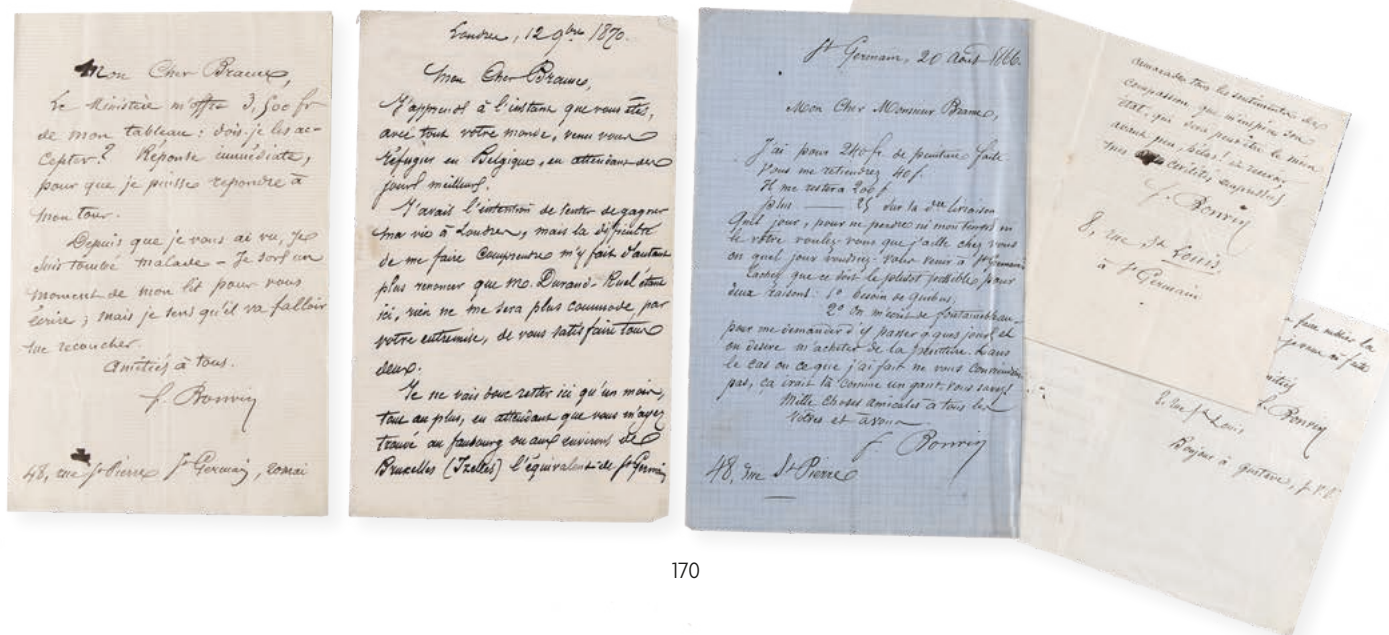 Mon Cher Brame,
Le Ministère m'offre 3,500 fr
de mon tableau : dois-je les ac-
cepter ? Réponse immédiate,
pour que je puisse repondre à
mon tour.
Depuis que je vous ai vu, je
suis tombé malade - Je sors un
moment de mon lit pour vous
écrire ; mais je sens qu'il va falloir
me recoucher.
Amitiés à tous.
f. Bonvin
48, rue St Pierre St Germain, 20 mai
Londres, 12 9bre 1870.
Mon Cher Brame,
J'apprends à l'instant que vous êtes,
avec tout votre monde, venu vous
réfugier en Belgique, en attendant des
jours meilleurs.
J'avais l'intention de tenter de gagner
ma vie à Londres, mais la difficulté
de me faire comprendre m'y fait d'autant
plus renoncer que M. Durand-Ruel étant
ici, rien ne me sera plus commode, par
votre entremise, de vous satisfaire tous
deux.
Je ne vais donc rester ici qu'un mois,
tout au plus, en attendant que vous m'ayez
trouvé au faubourg ou aux environs de
Bruxelles (Ixelles) l'équivalent de St Germain
St Germain, 20 Août 1866.
Mon Cher Monsieur Brame,
J'ai pour 240 fr de peinture faite
Vous me retiendrez 40 f.
Il me restera 200 f
plus — 25 sur la dre livraison
Quel jour, pour ne perdre ni mon temps ni
le vôtre voulez-vous que j'aille chez vous
ou quel jour voulez-vous venir à St Germain
Tachez que ce soit le plutôt possible, pour
deux raisons : 1° besoin de quibus,
2° On m'écrit de fontainebleau
pour me demander d'y passer qques jours et
on désire m'acheter de la peinture. Dans
le cas où ce que j'ai fait ne vous conviendrait
pas, ça irait là comme un gant. vous savez !
Mille choses amicales à tous les
vôtres et à vous
f. Bonvin
48, rue St Pierre
tous les sentiments de
compassion que m'inspire son
état, qui sera peut-être le mien
avant peu, hélas !
mes
f. Bonvin
8, rue St Louis
à St Germain
faire
la
Bonvin
8, rue St Louis
Bonjour à Gustave,
170